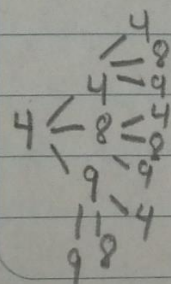 4
8
4 9
4
4 8 8
9
9
4
9 8